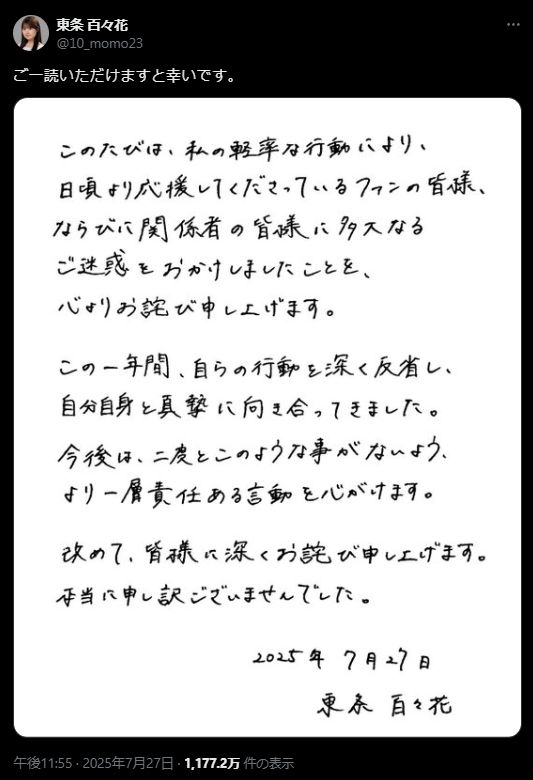 東条 百々花
@10_momo23
ご一読いただけますと幸いです。
このたびは、私の軽率な行動により、
日頃より応援してくださっているファンの皆様、
ならびに関係者の皆様に多大なる
ご迷惑をおかけしましたことを、
心よりお詫び申し上げます。
この一年間、自らの行動を深く反省し、
自分自身と真摯に向き合ってきました。
今後は、二度とこのような事がないよう、
より一層責任ある言動を心がけます。
改めて、皆様に深くお詫び申し上げます。
本当に申し訳ございませんでした。
2025年 7月27日
東条 百々花
午後11:55 · 2025年7月27日 · 1,177.2万 件の表示